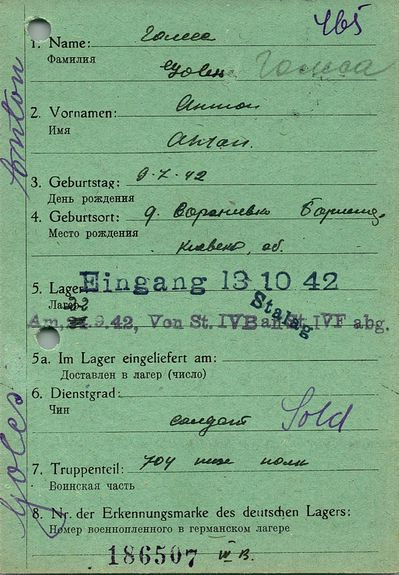 465
1. Name: Голса
Фамилия
Голса
2. Vornamen: Антон
Имя
Антон.
3. Geburtstag: 9.7.42
День рождения
4. Geburtsort: д.
Место рождения
об.
5. Lager
Eingang 13 10 42
Лагерь
Stalag
Am, 22.9.42, Von St. IVB an St. IVF abg.
5a. Im Lager eingeliefert am:
Доставлен в лагерь (число)
6. Dienstgrad:
Чин
солдат Sold
7. Truppenteil: 704 полк
Воинская часть
8. Nr. der Erkennungsmarke des deutschen Lagers:
Номер военнопленного в германском лагере
186507 IV B.
Anton
Goles